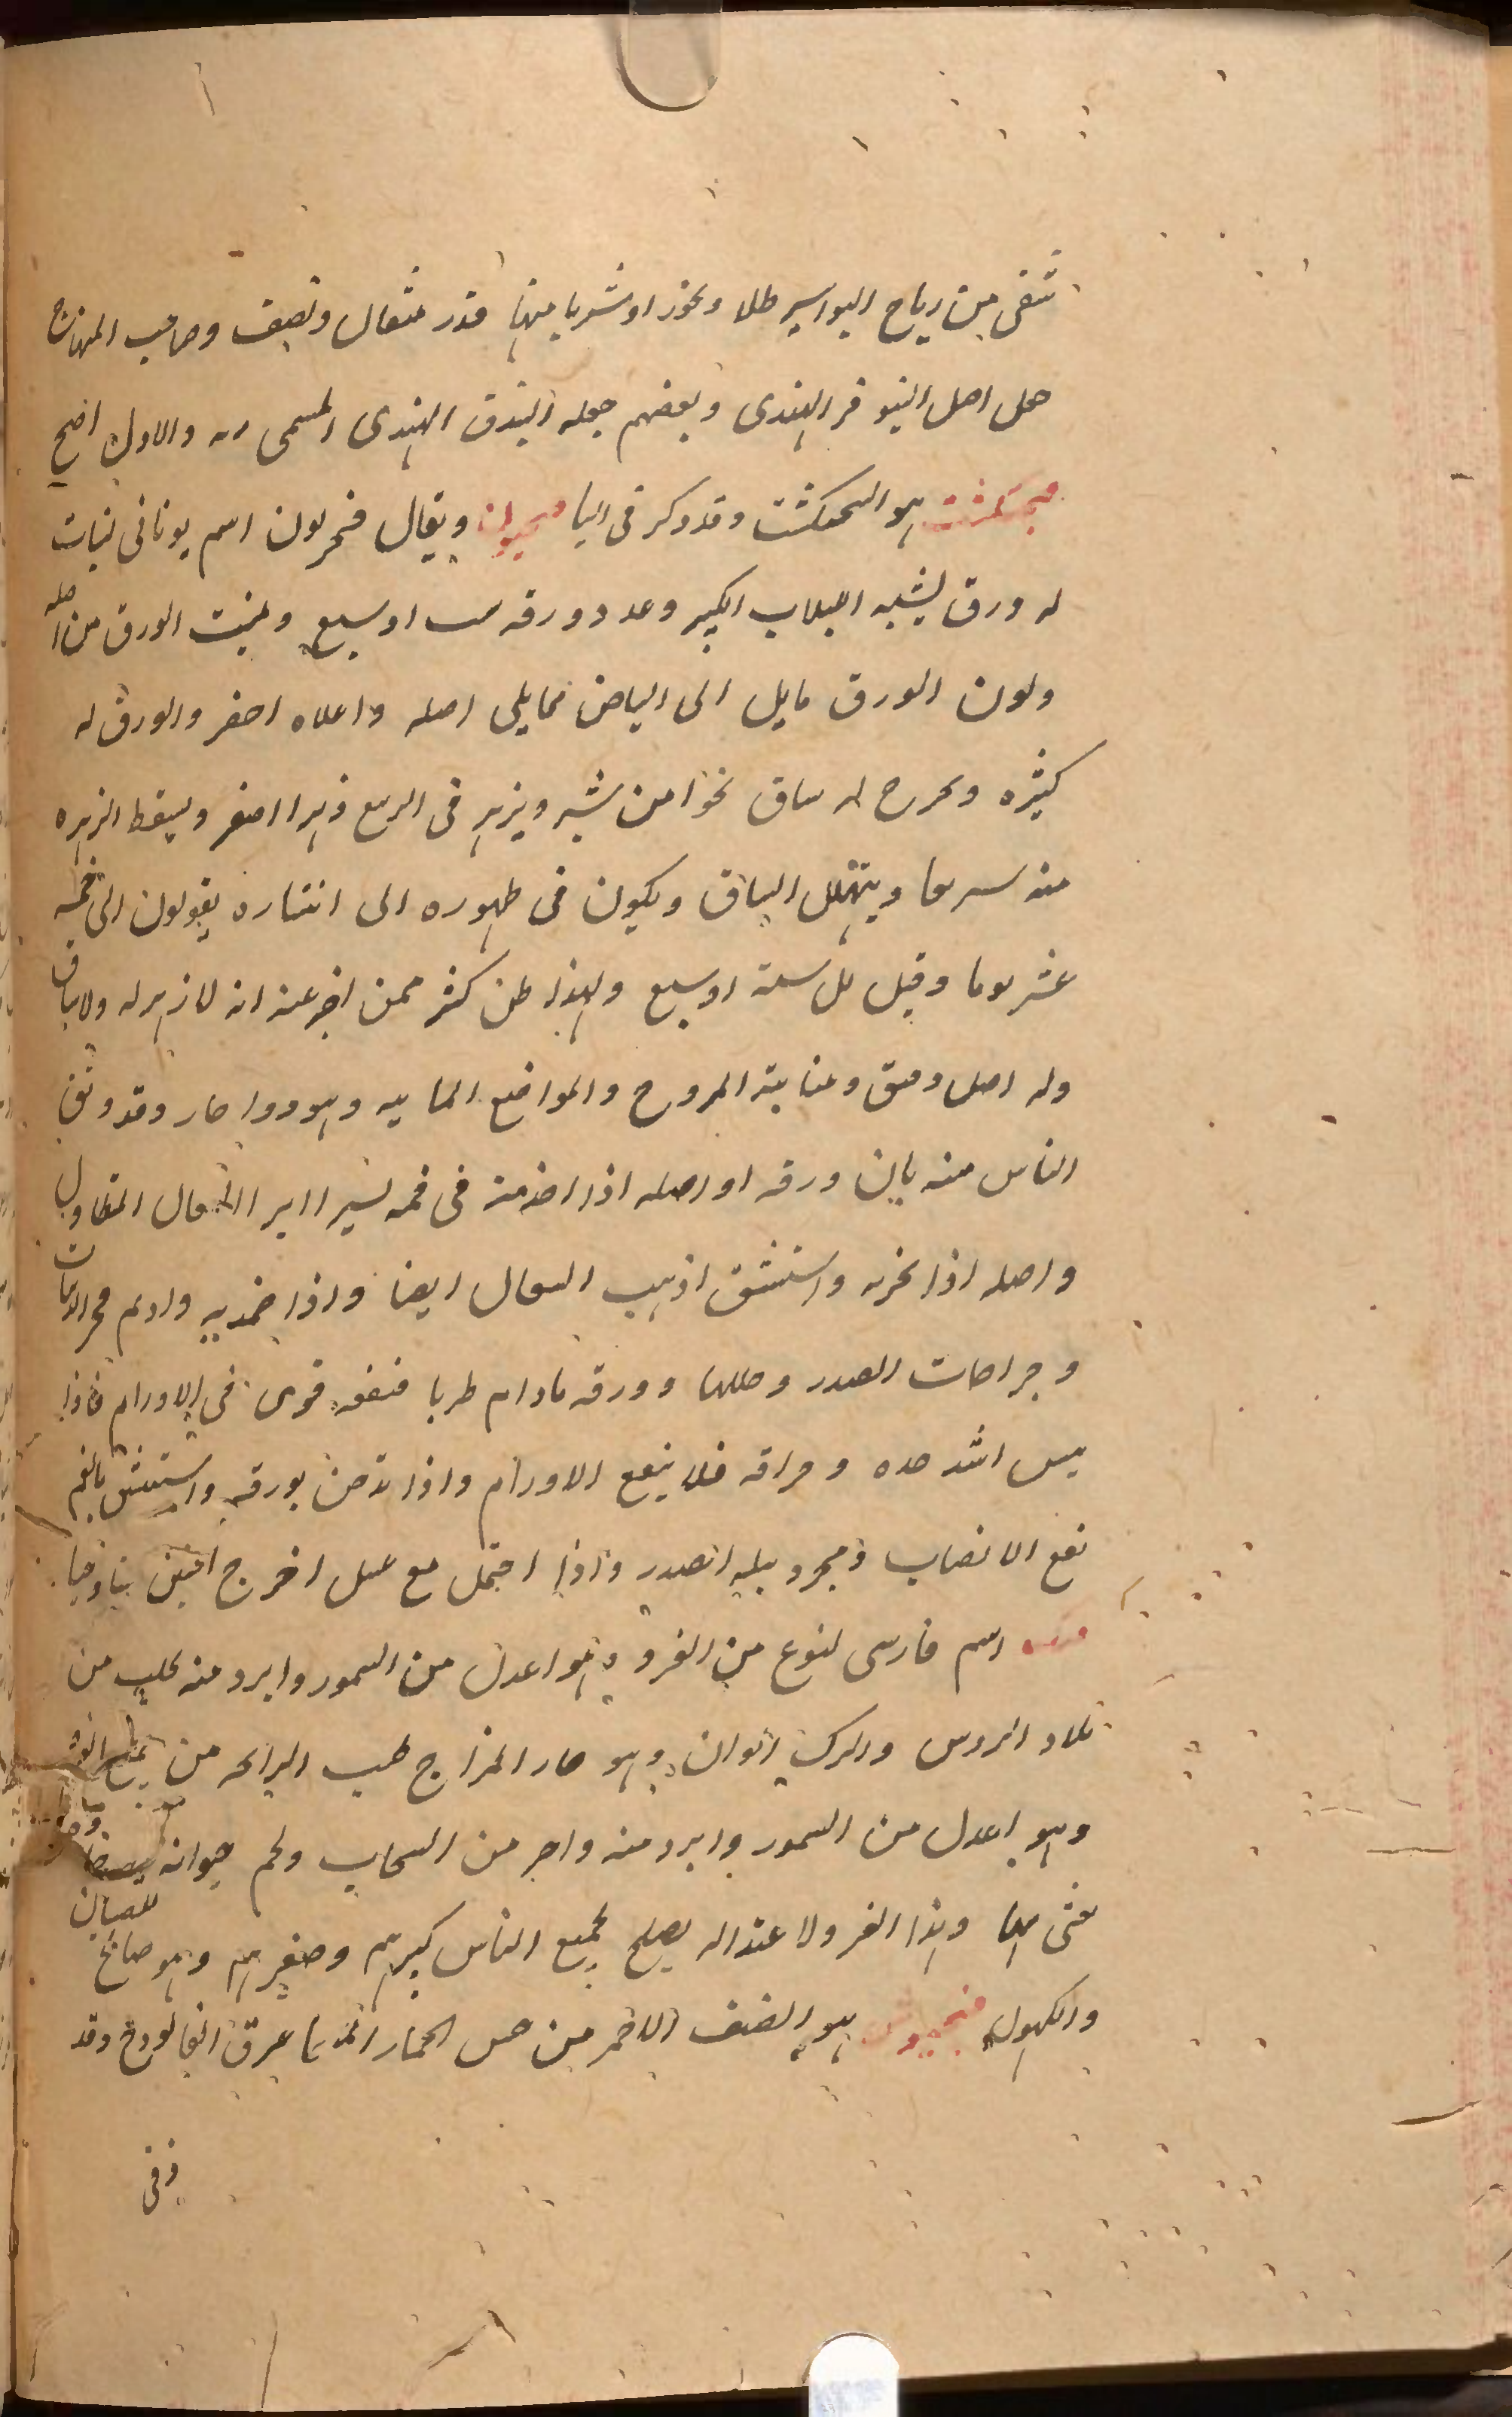 تنفى من رياح البواسير طلا وبخورا وشربا منها قدر مثقال ونصف وصاحب المنهاج
جعل اصل النيوفر الهندى وبعضهم جعله البندق الهندى المسمى رته والاول اصح
فنجنكشت هو البنجنكشت وقد ذكر فى البا فنجيون ويقال فنجريون اسم يونانى لنبات
له ورق يشبه اللبلاب الكبير وعدد ورقه ست او سبع ومنبت الورق من اصله
ولون الورق مايل الى البياض مما يلى اصله واعلاه اصفر والورق له
كثيره ويخرج له ساق نحوا من شبر ويزهر فى الربيع زهرا اصفر ويسقط الزهره
منه سريعا ويتهلل الساق ويكون فى ظهوره الى انتثاره يقولون الى خمسه
عشر يوما وقيل بل ستة او سبع ولهذا ظن كثر ممن اخبر عنه انه لا زهر له ولا ساق
وله اصل دقيق ومنابته المروج والمواضع المائيه وهو دوا حار وقد وثق
الناس منه بان ورقه او اصله اذا اخذ منه فى فمه يسيرا ابرا السعال المتطاول
واصله اذا بخر به واستنشق اذهب السعال ايضا واذا ضمد به وادم فجر الدبيلات
وجراحات الصدر وحللها وورقه مادام طريا فنفعه قوى فى الاورام فاذا
يبس اشتد حده وحراقه فلا ينفع الاورام واذا تدخن بورقه واستنشق بالفم
نفع الانصاب وفجر دبيله الصدر واذا احتمل مع عسل اخرج الجنين
فنك اسم فارسى لنوع من الفرو وهو اعدل من السمور وابرد منه يجلب من
بلاد الروس والترك الوان وهو حار المزاج طيب الرائحه من جميع الفرا
وهو اعدل من السمور وابرد منه واحر من السنجاب ولحم حيوانه
وهذا الفرو لاعتداله يصلح لجميع الناس كبيرهم وصغيرهم وهو صالح للصبيان
والكهول فنجيوش هو الصنف الاحمر من خس الحمار انما عرق الفالوذج وقد
وفى